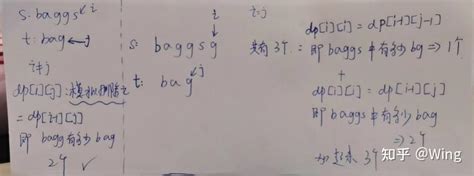 s: baggs i
t: bag j
i≠j
dp[i][j]: 模拟删除 i
= dp[i-1][j]
即 bagg有多少 bag
2个 ✓
i
s: baggsg
j
t: bag
i=j
共有3个
dp[i][j] = dp[i-1][j-1]
= 即 baggs 中有多少 bg ⇒ 1个
+
dp[i][j] = dp[i-1][j]
即 baggs中有多少 bag
⇒ 2个
3个
知乎 @Wing